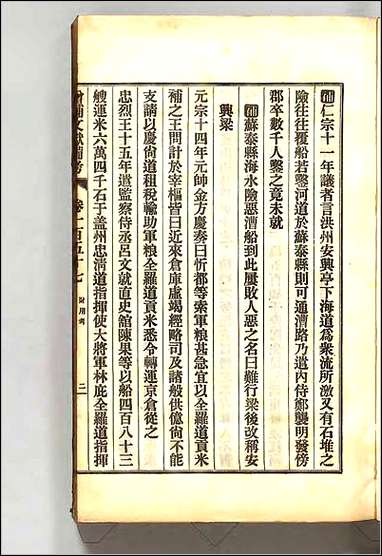 補仁宗十一年議者言洪州安興亭下海道爲衆流所激又有石堆之
險往往覆船若鑿河道於蘇泰縣則可通漕路乃遣內侍鄭襲明發傍
郡卒數千人鑿之竟未就
補蘇泰縣海水險惡漕船到此屢敗人惡之名曰難行梁後改稱安
興梁
元宗十四年元帥金方慶奏曰忻都等索軍粮甚急宜以全羅道貢米
補之王問計於宰樞皆曰近來倉庫虛竭經略司及諸般供億尙不能
支請以慶尙道租稅輸助軍粮全羅道貢米悉令轉運京倉從之
忠烈王十五年遣監察侍丞呂文就直史館陳果等以船四百八十三
艘運米六萬四千石于盖州忠淸道指揮使大將軍林庇全羅道指揮
增補文獻備考 卷一百五十七 財用考 二